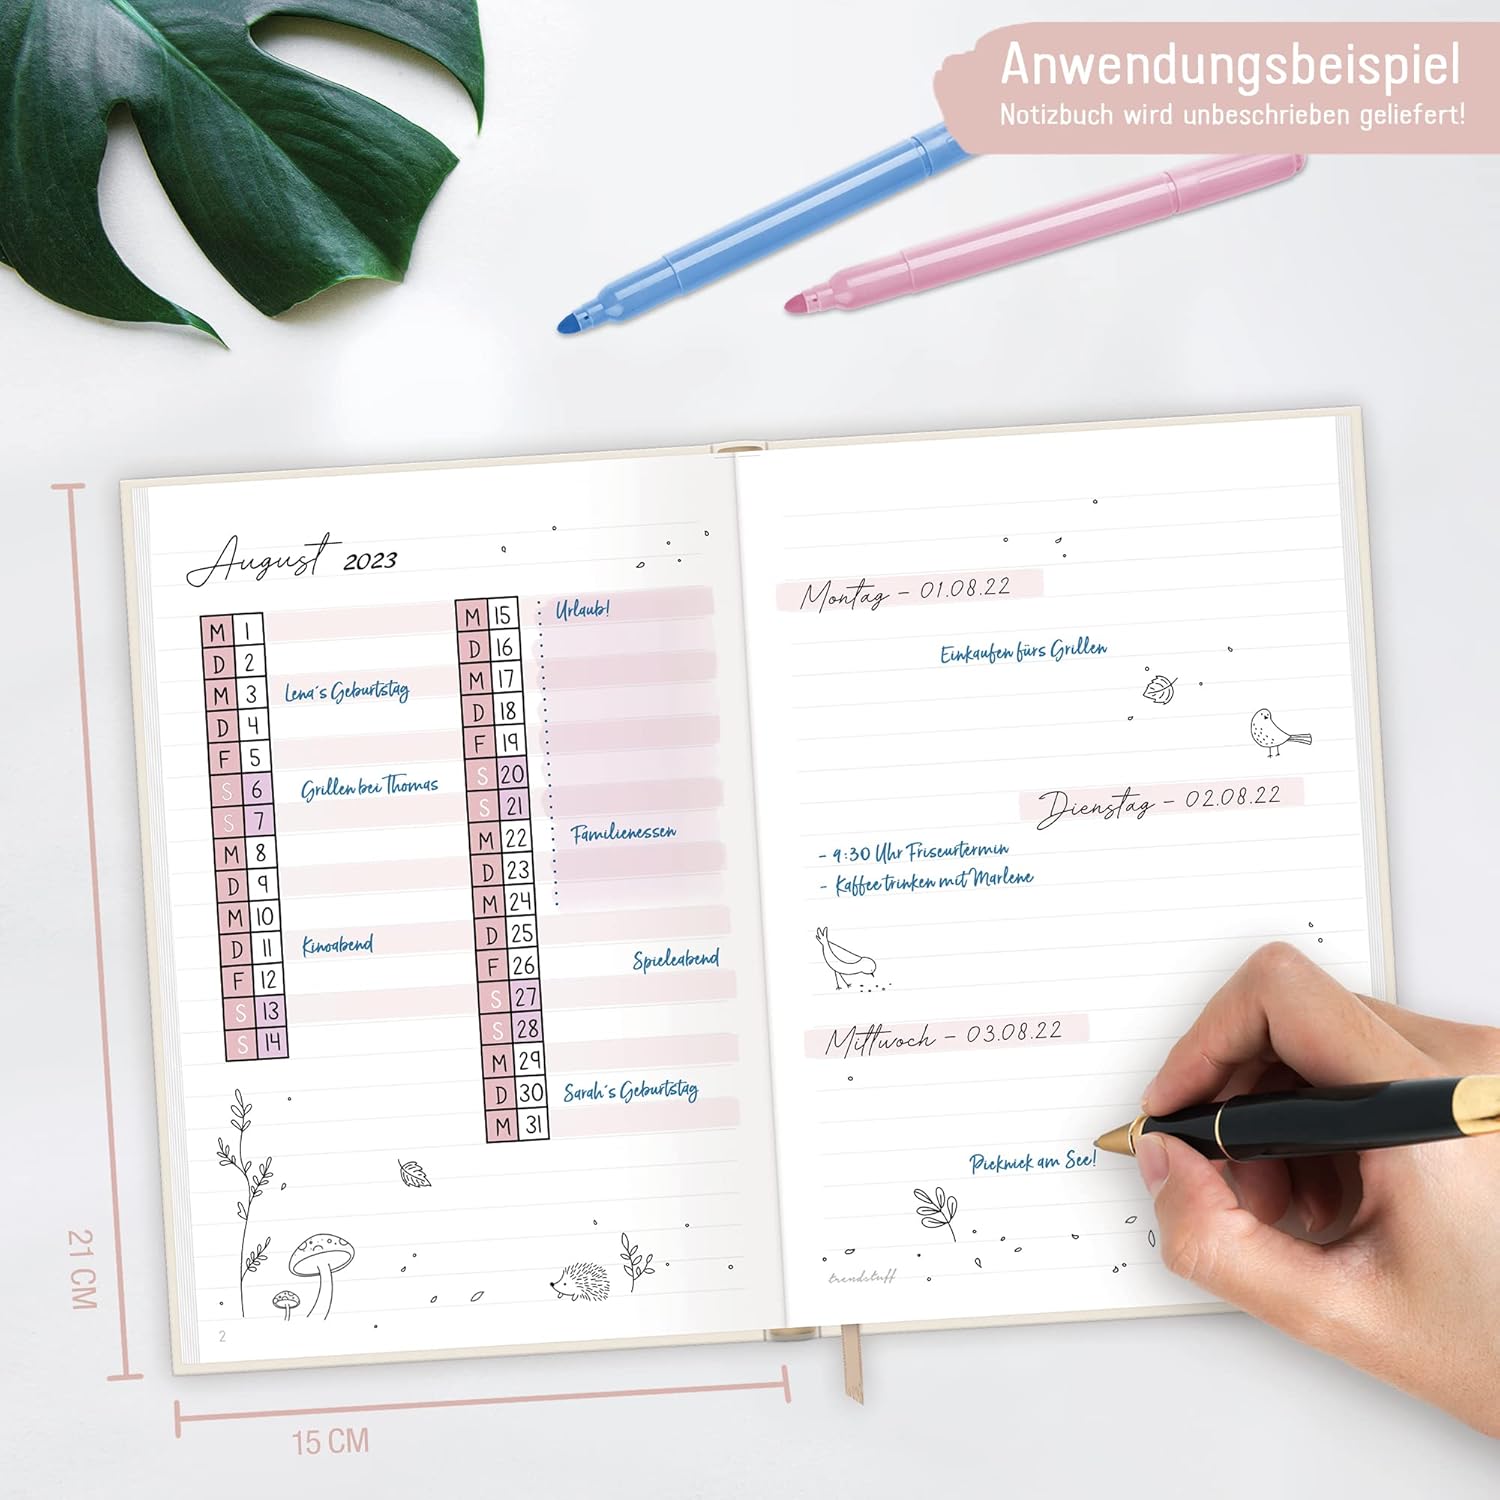 Anwendungsbeispiel
Notizbuch wird unbeschrieben geliefert!
August 2023
M 1
D 2
M 3 Lena's Geburtstag
D 4
F 5
S 6 Grillen bei Thomas
S 7
M 8
D 9
M 10
D 11 Kinoabend
F 12
S 13
S 14
M 15 Urlaub!
D 16
M 17
D 18
F 19
S 20
S 21
M 22 Familienessen
D 23
M 24
D 25
F 26 Spieleabend
S 27
S 28
M 29
D 30 Sarah's Geburtstag
M 31
2
Montag - 01.08.22
Einkaufen fürs Grillen
Dienstag - 02.08.22
- 9:30 Uhr Friseurtermin
- Kaffee trinken mit Marlene
Mittwoch - 03.08.22
Picknick am See!
trendstuff
21 CM
15 CM